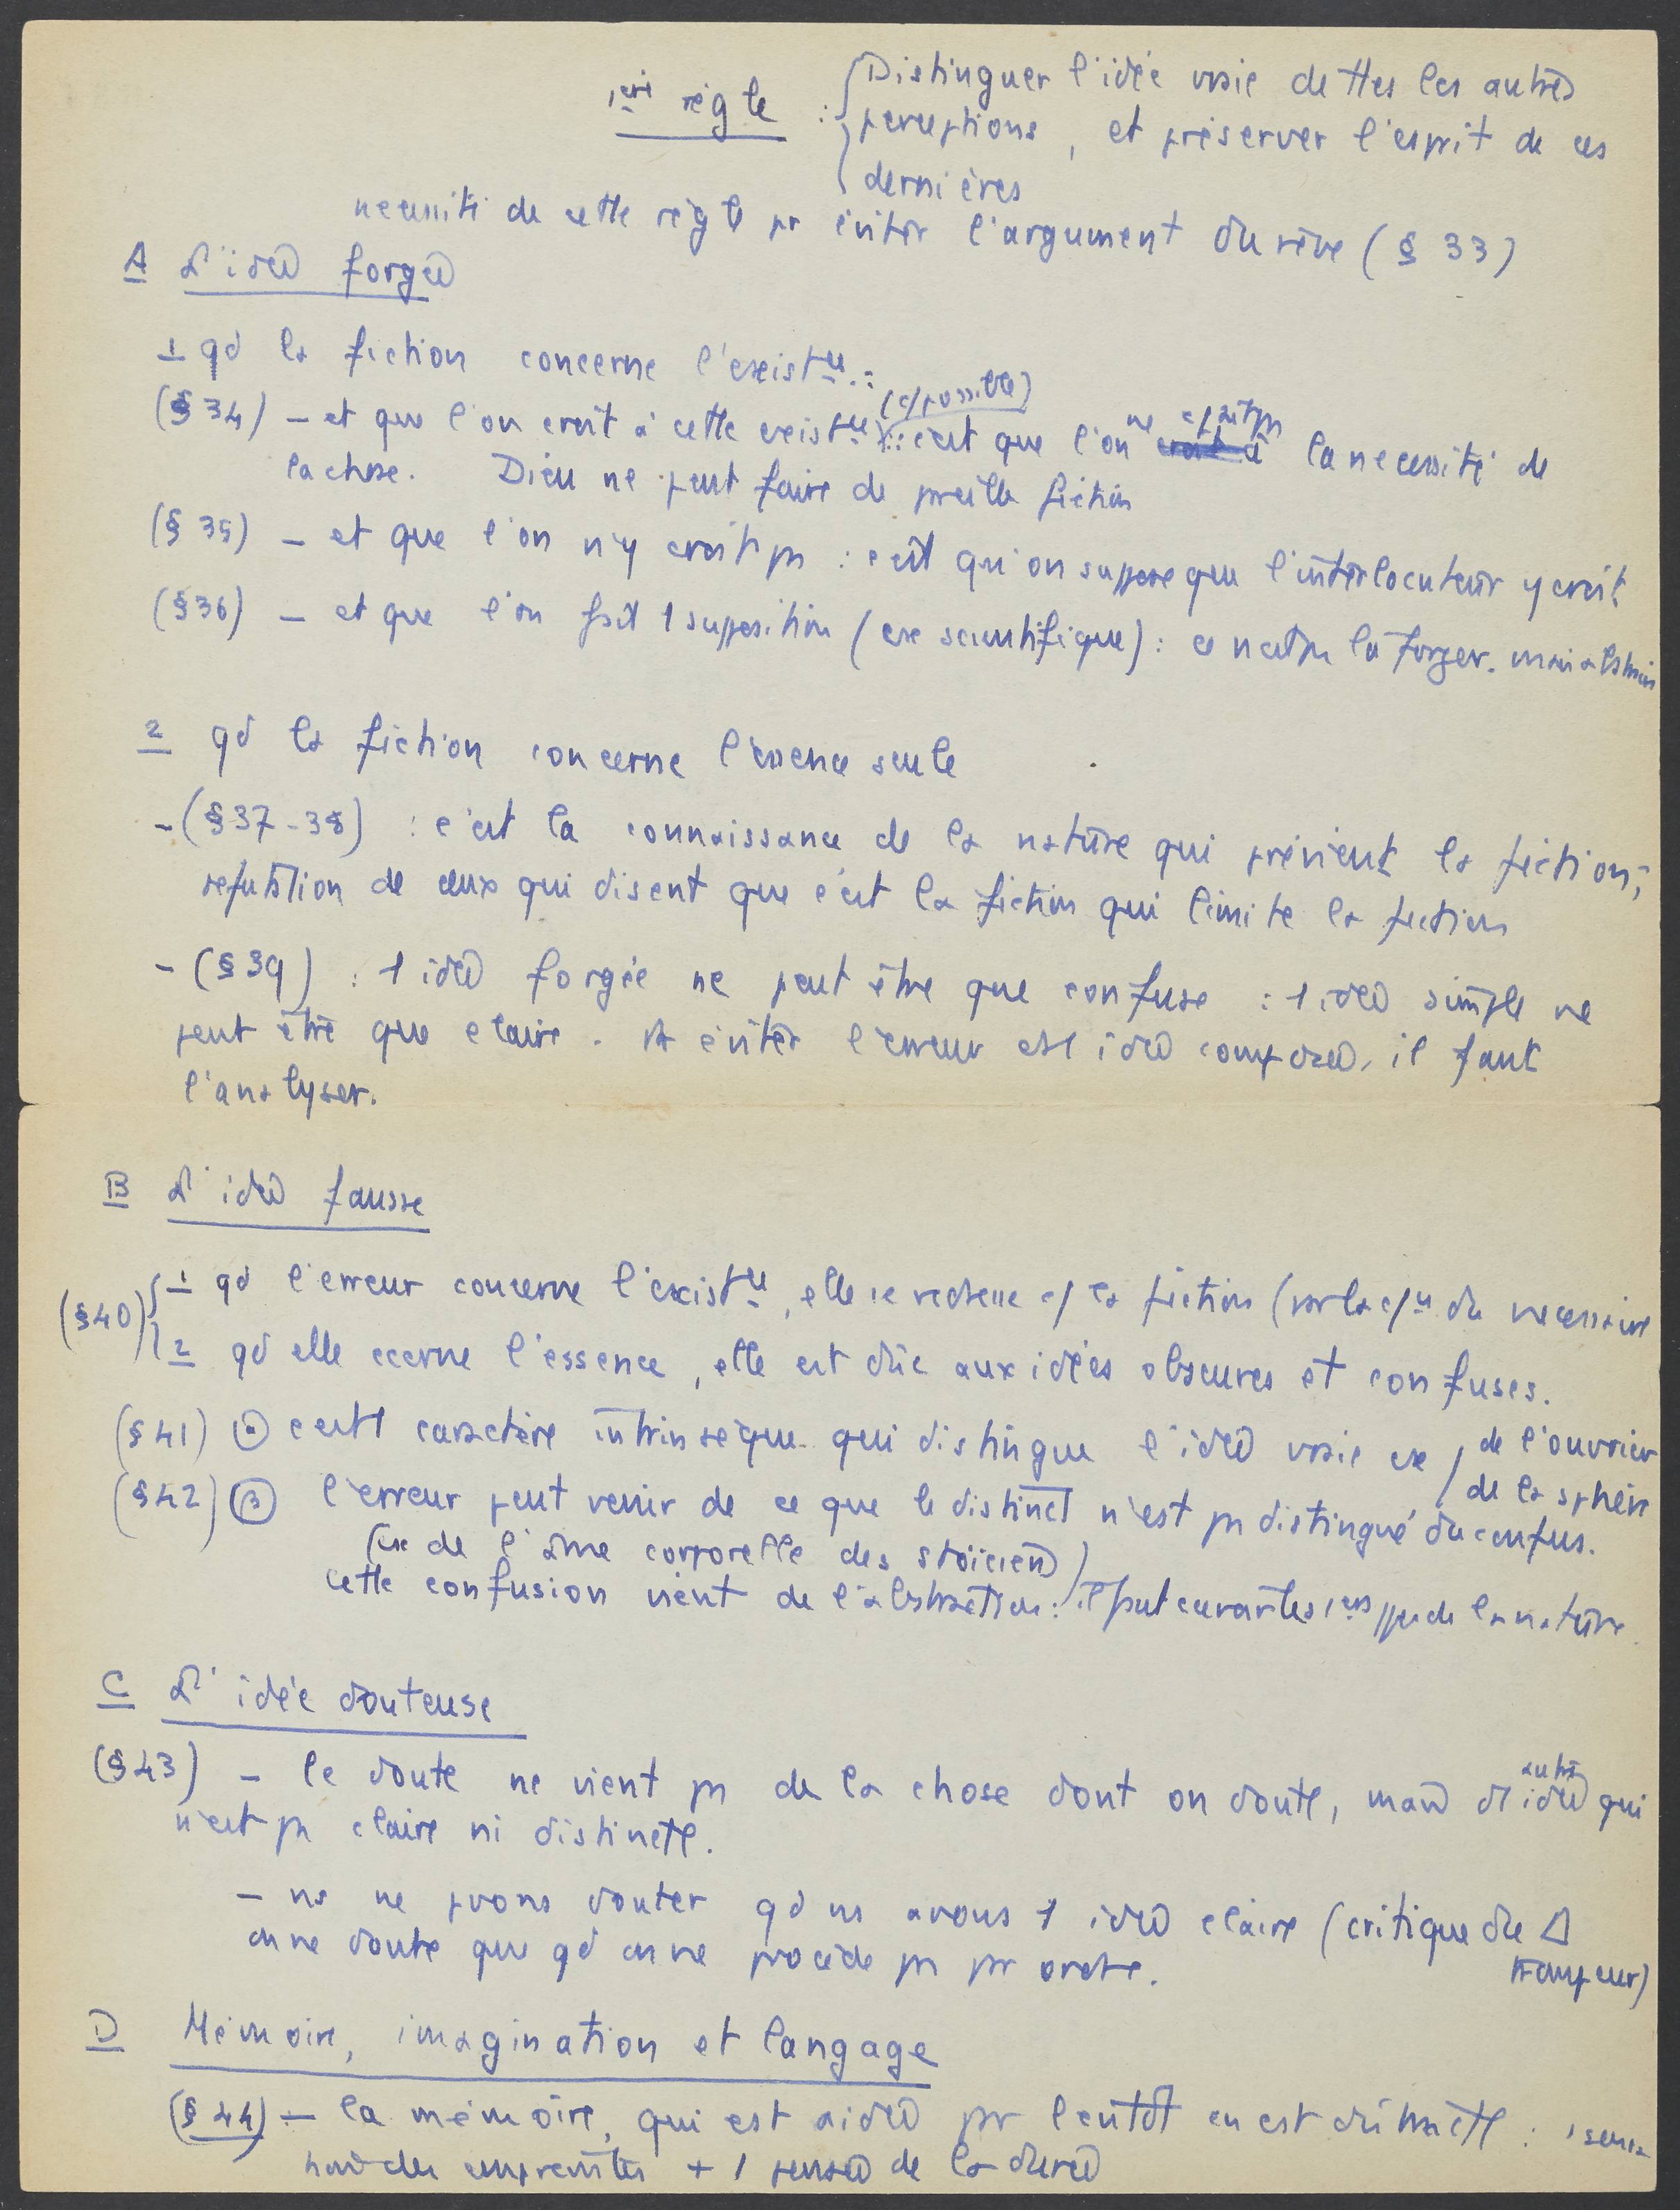 1ère règle : Distinguer l'idée vraie de ttes les autres
perceptions, et préserver l'esprit de ces
dernières
nécessité de cette règle pr éviter l'argument du rêve (§ 33)
A L'idée forgée
1 qd la fiction concerne l'existce :
(§ 34) – et que l'on croit à cette existce (c/possible) : c'est que l'on ne c/prend pas la nécessité de
la chose. Dieu ne peut faire de pareille fiction
(§ 35) – et que l'on n'y croit pas : c'est qu'on suppose que l'interlocuteur y croit
(§ 36) – et que l'on fait 1 supposition (ex scientifique) : ce n'est pas la forger. mais abstraire
2 qd la fiction concerne l'essence seule
– (§ 37-38) : c'est la connaissance de la nature qui prévient la fiction ;
réfutation de ceux qui disent que c'est la fiction qui limite la fiction
– (§ 39) : 1 idée forgée ne peut être que confuse : 1 idée simple ne
peut être que claire. Pr éviter l'erreur idée composée, il faut
l'analyser.
B L'idée fausse
(§ 40) 1 qd l'erreur concerne l'existce, elle se redresse c/ la fiction (par la du nécessaire
2 qd elle ccerne l'essence, elle est dûe aux idées obscures et confuses.
(§ 41) c'est 1 caractère intrinsèque qui distingue l'idée vraie ex / de l'ouvrier
/ de la sphère
(§ 42) l'erreur peut venir de ce que le distinct n'est pas distingué du confus.
(ex de l'âme corporelle des stoïciens)
cette confusion vient de l'abstraction : il faut de la nature
C L'idée douteuse
(§ 43) – le doute ne vient pas de la chose dont on doute, mais d'1 autre idée qui
n'est pas claire ni distincte.
– ns ne pvons douter qd ns avons 1 idée claire (critique du Δ
trompeur)
on ne doute que qd on ne procède pas par ordre.
D Mémoire, imagination et langage
(§ 44) – la mémoire, qui est aidée par l'entdt en est distincte :
des empreintes + 1 pensée de la durée